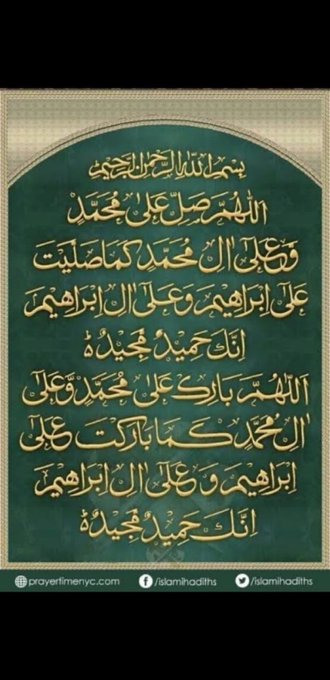 بِسْمِ اللهِ الرَّحْمٰنِ الرَّحِيْمِ
اَللّٰهُمَّ صَلِّ عَلٰى مُحَمَّدٍ
وَّعَلٰٓى اٰلِ مُحَمَّدٍ كَمَا صَلَّيْتَ
عَلٰٓى اِبْرَاهِيْمَ وَعَلٰٓى اٰلِ اِبْرَاهِيْمَ
اِنَّكَ حَمِيْدٌ مَّجِيْدٌ ؕ
اَللّٰهُمَّ بَارِكْ عَلٰى مُحَمَّدٍ وَّعَلٰٓى
اٰلِ مُحَمَّدٍ كَمَا بَارَكْتَ عَلٰٓى
اِبْرَاهِيْمَ وَعَلٰٓى اٰلِ اِبْرَاهِيْمَ
اِنَّكَ حَمِيْدٌ مَّجِيْدٌ ؕ
prayertimenyc.com /islamihadiths /islamihadiths